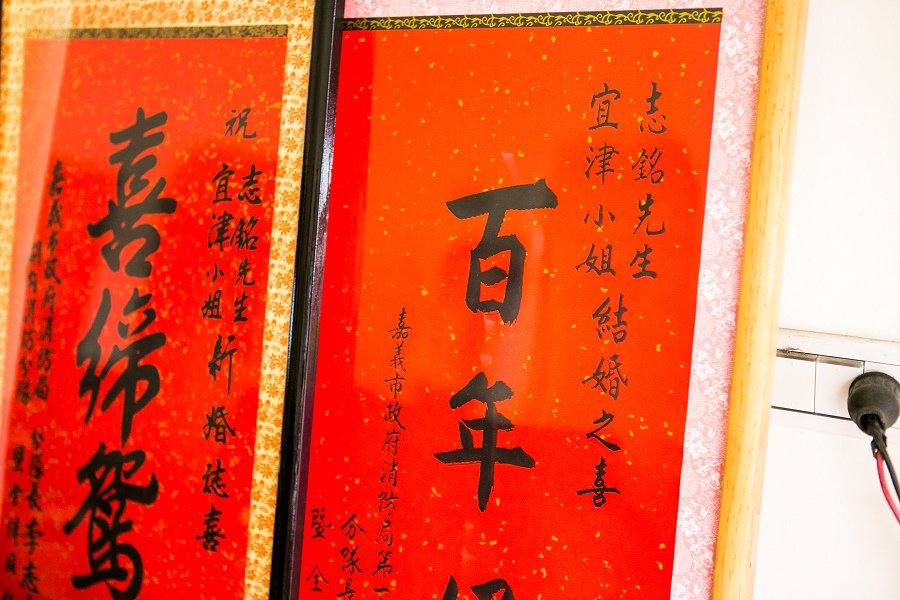 志銘先生
宜津小姐結婚之喜
百年
嘉義市政府消防局第一
分隊長
暨全
祝
志銘先生
宜津小姐新婚誌喜
喜締鴛
嘉義市政府消防局
分隊長李志